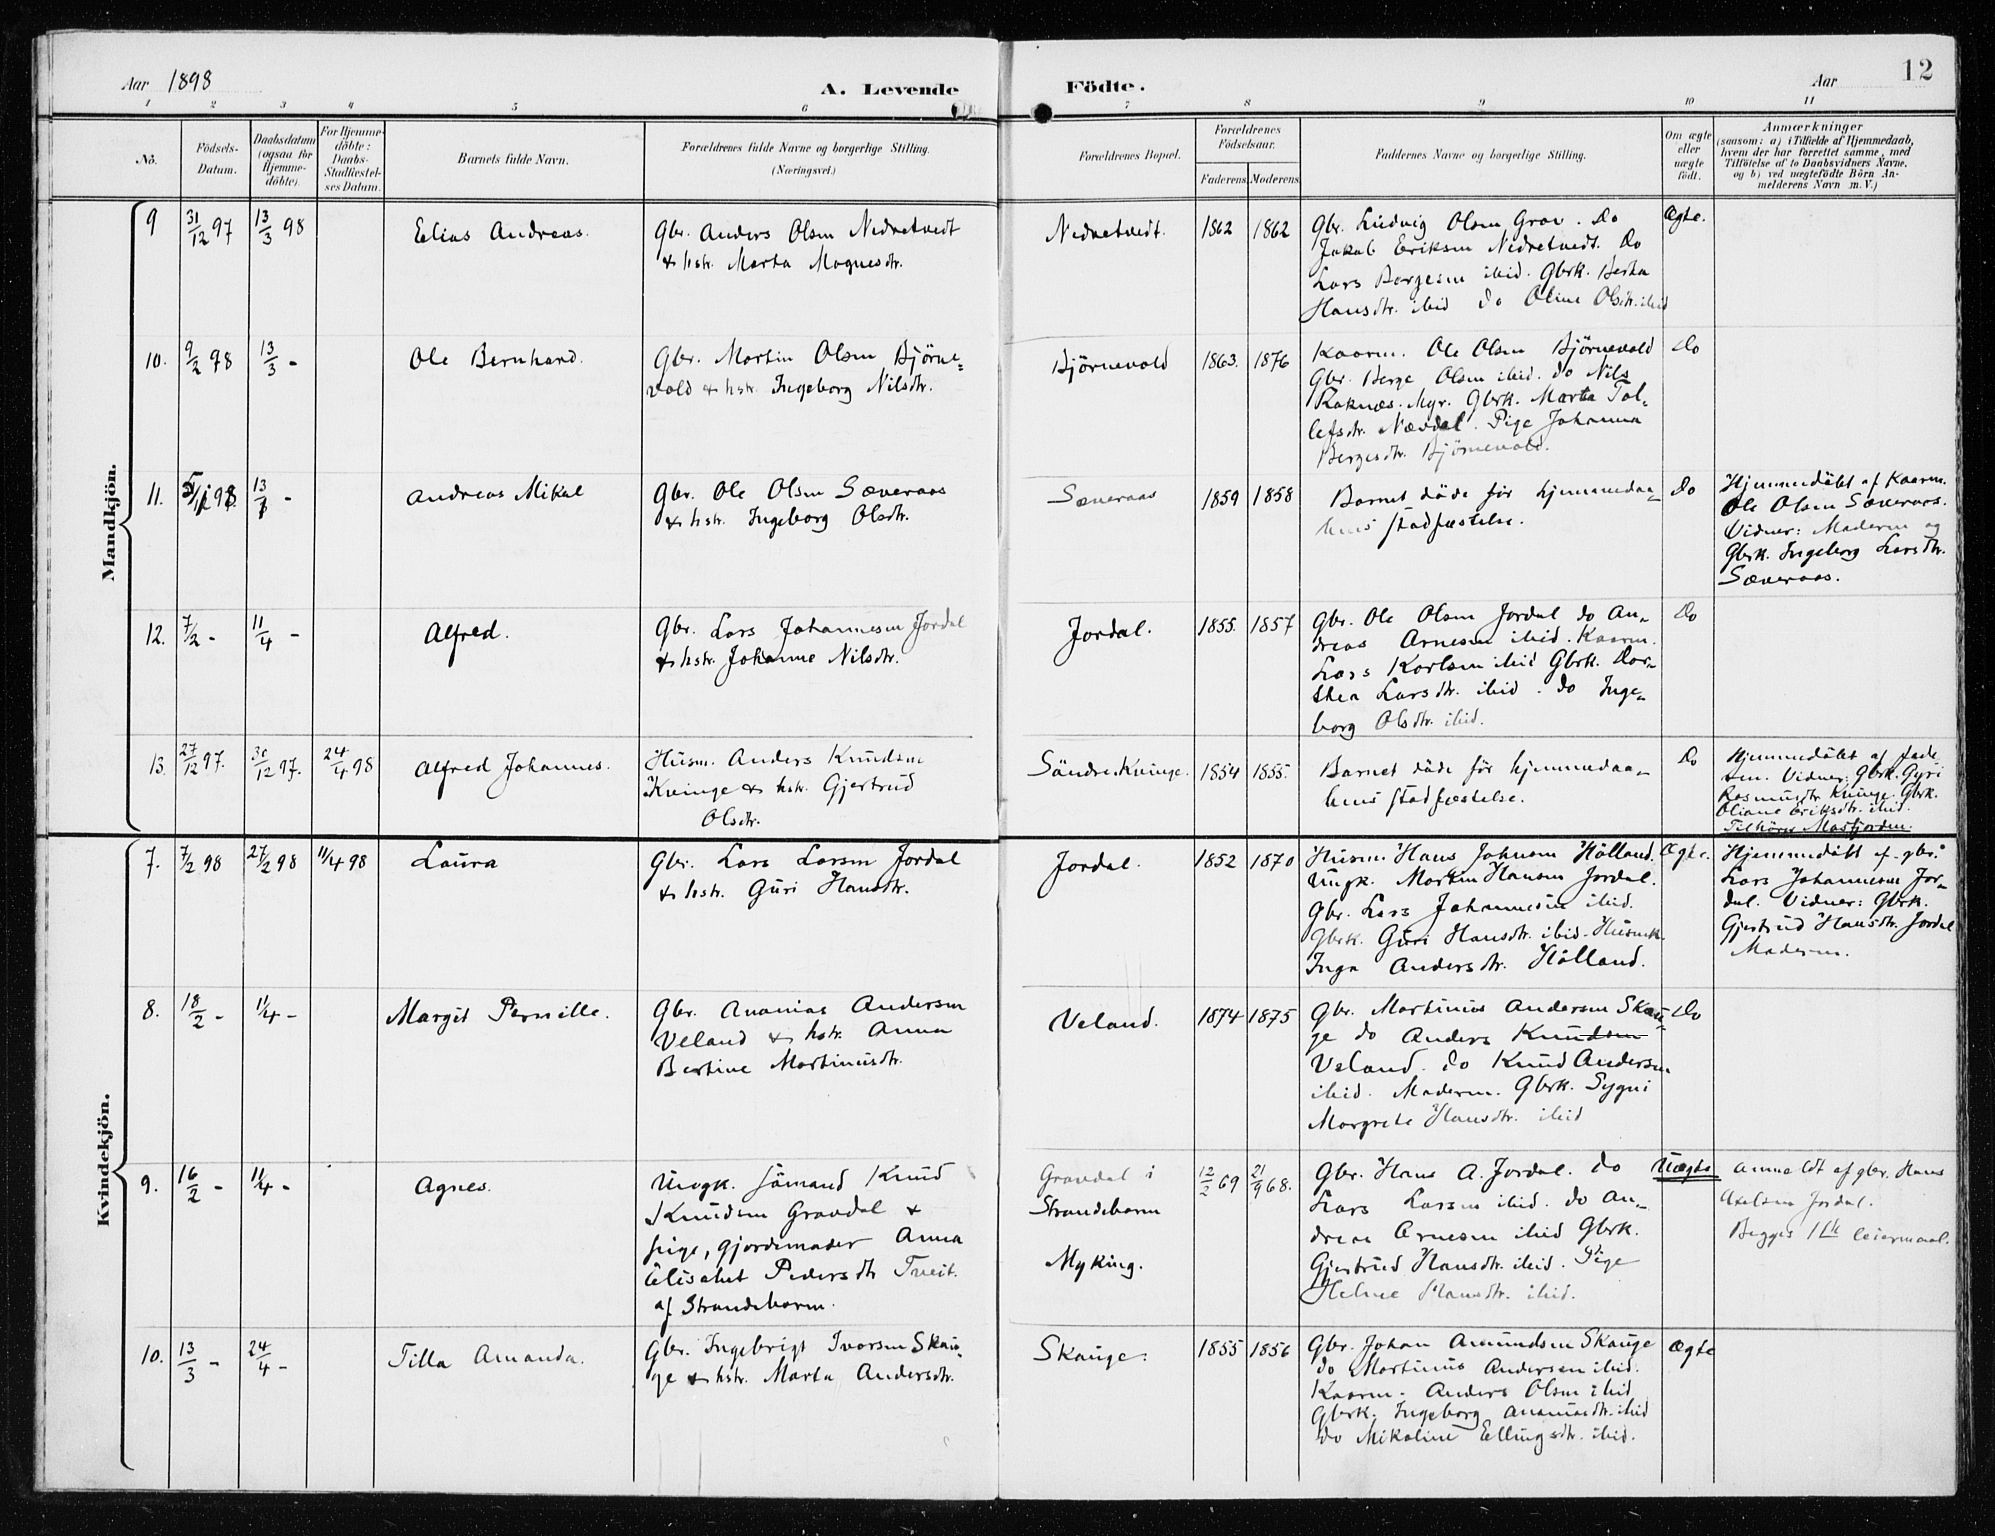 Aar 1898
A. Levende Födte.
Aar
12
1 2 3 4 5 6 7 8 9 10 11
No.
Födsels-
Datum.
Daabsdatum
(ogsaa for
Hjemme-
döbte).
For Hjemme-
döbte:
Daabs-
Stadfæstel-
ses Datum.
Barnets fulde Navn.
Forældrenes fulde Navne og borgerlige Stilling.
(Næringsvei.)
Forældrenes Bopæl.
Forældrenes
Födselsaar.
Faderens.
Moderens.
Faddernes Navne og borgerlige Stilling.
Om ægte
eller
uægte
födt.
Anmærkninger
(saasom: a) i Tilfælde af Hjemmedaab,
hvem der har forrettet samme, med
Tilföielse af to Daabsvidners Navne,
og b) ved uægtefödte Börn An-
melderens Navn m. V.)
Mandkjön.
9
31/12 97
13/3 98
Elias Andreas.
Gbr. Anders Olsen Nedretvedt
& hstr. Marta Magnesdtr.
Nedretvedt.
1862
1862
Gbr. Ludvig Olsen Grov. Do
Jakob Eriksen Nedretvedt. Do
Lars Borgesen ibid. Gbrk. Berta
Hansdtr. ibid do Oline Olsdtr. ibid
Ægte.
10.
9/2 98
13/3 -
Ole Bernhard.
Gbr. Martin Olsen Bjørne-
vold & hstr. Ingeborg Nilsdtr.
Bjørnevold
1863.
1876
Kaarm. Ole Olsen Bjørnevold
Gbr. Berge Olsen ibid. do Nils
Roknæs. Myr. Gbrk. Marta Tol-
lefsdtr. Nævdal. Pige Johanna
Bergesdtr. Bjørnevold.
Do
11.
98.
13/3 -
Andreas Mikal
Gbr. Ole Olsen Sæveraas
& hstr. Ingeborg Olsdtr.
Sæveraas
1859
1858
Barnet döde för hjemmedaa-
bens stadfæstelse.
Do
Hjemmedöbt af Kaarm.
Ole Olsen Sæveraas.
Vidner: Moderen og
Gbrk. Ingeborg Larsdtr.
Sæveraas.
12.
7/2 -
11/4 -
Alfred.
Gbr. Lars Johannesen Jordal
& hstr. Johanne Nilsdtr.
Jordal.
1855.
1857
Gbr. Ole Olsen Jordal do An-
dreas Arnesen ibid. Kaarm.
Lars Karlsen ibid Gbrk. Dor-
thea Larsdtr. ibid. do Inge-
borg Olsdtr. ibid.
Do
13.
27/12 97.
31/12 97.
24/4 98
Alfred Johannes.
Husm. Anders Knudsen
Kvinge & hstr. Gjertrud
Olsdtr.
Söndre Kvinge.
1854
1855.
Barnet döde för hjemmedaa-
bens stadfæstelse.
Do
Hjemmedöbt af Fade-
ren. Vidner: Gbrk. Gyri
Rasmusdtr. Kvinge. Gbrk.
Oliane Eriksdtr. ibid.
Tilhörer Masfjorden.
Kvindekjön.
7.
7/2 98
27/2 98
11/4 98
Laura
Gbr. Lars Larsen Jordal
& hstr. Guri Hansdtr.
Jordal.
1852
1870
Husm. Hans Johnsen Hölland.
Ungk. Morten Hansen Jordal.
Gbr. Lars Johannesen ibid.
Gbrk. Guri Hansdtr. ibid. Husmk.
Inga Andersdtr. Hölland.
Ægte.
Hjemmedöbt af gbr.
Lars Johannesen Jor-
dal. Vidner: Gbrk.
Gjertrud Hansdtr. Jordal
Moderen.
8.
18/2 -
11/4 -
Margit Pernille.
Gbr. Ananias Andersen
Veland & hstr. Anna
Bertine Martinusdtr.
Veland.
1874
1875
Gbr. Martinus Andersen Skau-
ge do Anders Knudsen
Veland. do Knud Andersen
ibid. Moderen. Gbrk. Sygni
Margrete Hansdtr. ibid
Do
9.
16/2 -
11/4 -
Agnes.
Ungk. sömand Knud
Knudsen Gravdal &
pige, gjordemoder Anna
Elisabet Pedersdtr Tveit.
af Strandebarm.
Gravdal i
Strandebarm
Myking.
12/2 69
21/9 68.
Gbr. Hans A. Jordal. do
Lars Larsen ibid. do An-
dreas Arnesen ibid Gbrk.
Gjertrud Hansdtr. ibid. Pige
Helene Hansdtr. ibid.
Uægte
Anmeldt af gbr. Hans
Axelsen Jordal.
Begges 1ste leiermaal.
10.
13/3 -
24/4 -
Tilla Amanda.
Gbr. Ingebrigt Ivarsen Skau-
ge & hstr. Marta Andersdtr.
Skauge.
1855
1856
Gbr. Johan Amundsen Skauge
do Martinus Andersen ibid.
Kaarm. Anders Olsen ibid
Gbrk. Ingeborg Ananiasdtr. ibid
do Mikaline Ellingsdtr. ibid.
Ægte